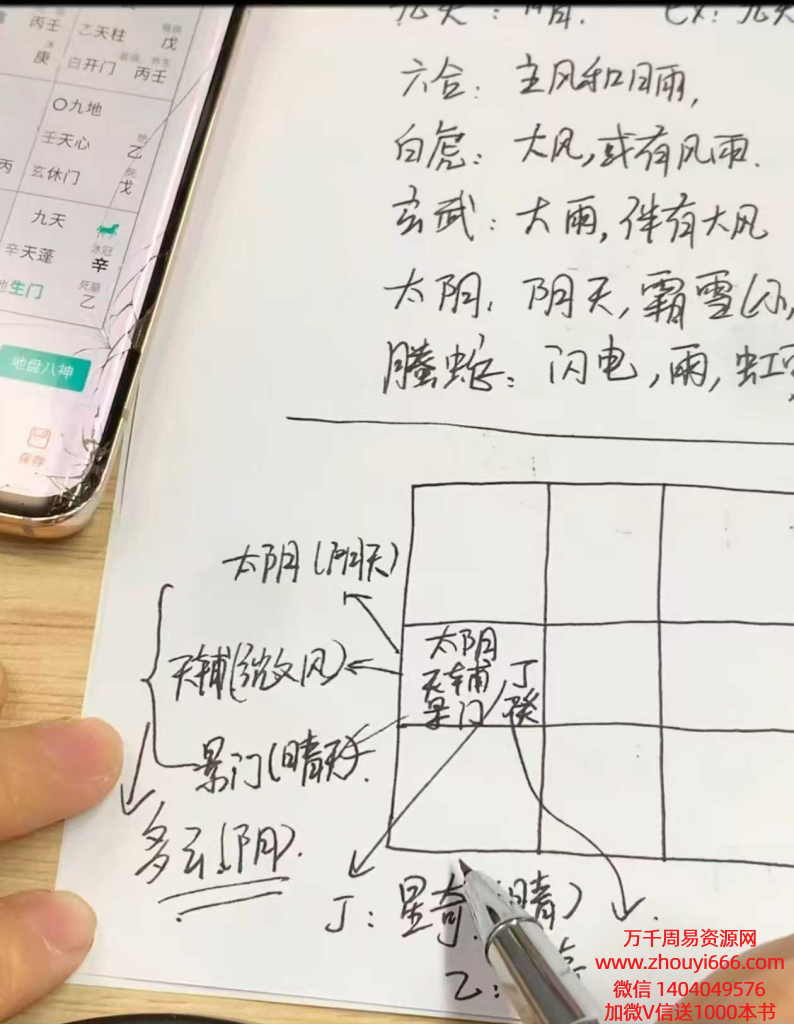 丙壬
庚
乙天柱
戊
白开门
丙壬
〇九地
壬天心
乙
玄休门
戊
丙
九天
辛天蓬
沐冠
辛
死墓
地生门
乙
地盘八神
保存
六合：主风和日雨，
白虎：大风，或有风雨.
玄武：大雨，伴有大风
太阴：阴天，霜雪(小,
腾蛇：闪电，雨，虹
太阴(阴天)
天辅(微文风)
景门(晴天).
多云(阴).
太阴
天辅 丁
景门 癸
丁：星奇(晴)
乙：
万千周易资源网
www.zhouyi666.com
微信 1404049576
加微V信送1000本书